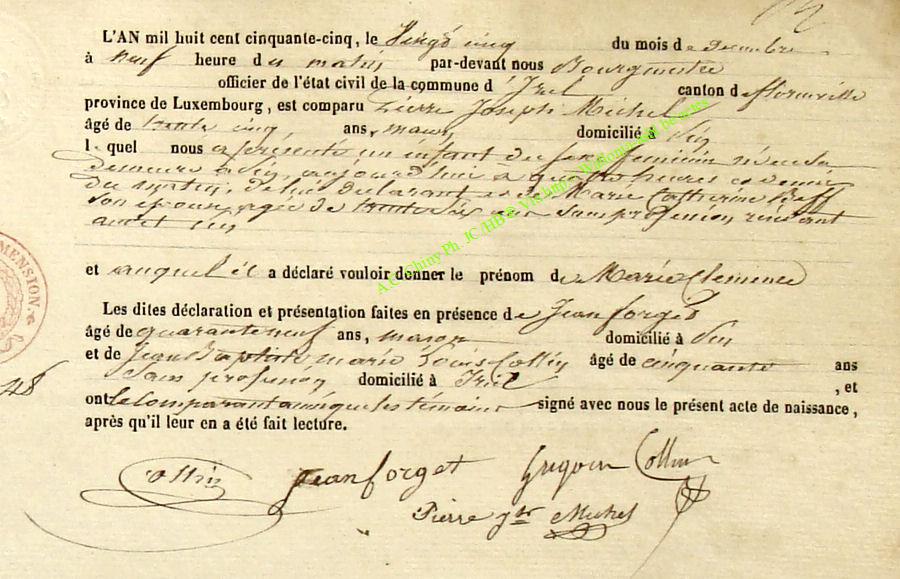 L'AN mil huit cent cinquante-cinq, le Vingt cinq du mois de Decembre
à neuf heure du matin par-devant nous Bourgmestre
officier de l'état civil de la commune d'Izel canton de florenville
province de Luxembourg, est comparu Pierre Joseph Michel
âgé de trente cinq, ans, domicilié à Pin
lequel nous a présenté un infant du sexe feminin né en sa
demeure à Pin, aujourd'hui à quatre heures et demie
du matin, de lui declarant et de Marie Catherine
son épouse, agée de trente six ans Sans profession, residant
audit Pin
et auquel il a déclaré vouloir donner le prénom de Marie Clemence
Les dites déclaration et présentation faites en présence de Jean forget
âgé de quarante neuf ans, maçon domicilié à Pin
et de Jean Baptiste, marie Louis Collin âgé de cinquante ans
Sans profession domicilié à Izel, et
ont le comparant ainsi que les témoins signé avec nous le présent acte de naissance,
après qu'il leur en a été fait lecture.
Collin Jean forget Collin
Pierre Jph Michel
MENSION.
48
A.C. Chiny Ph. JC/HB ©